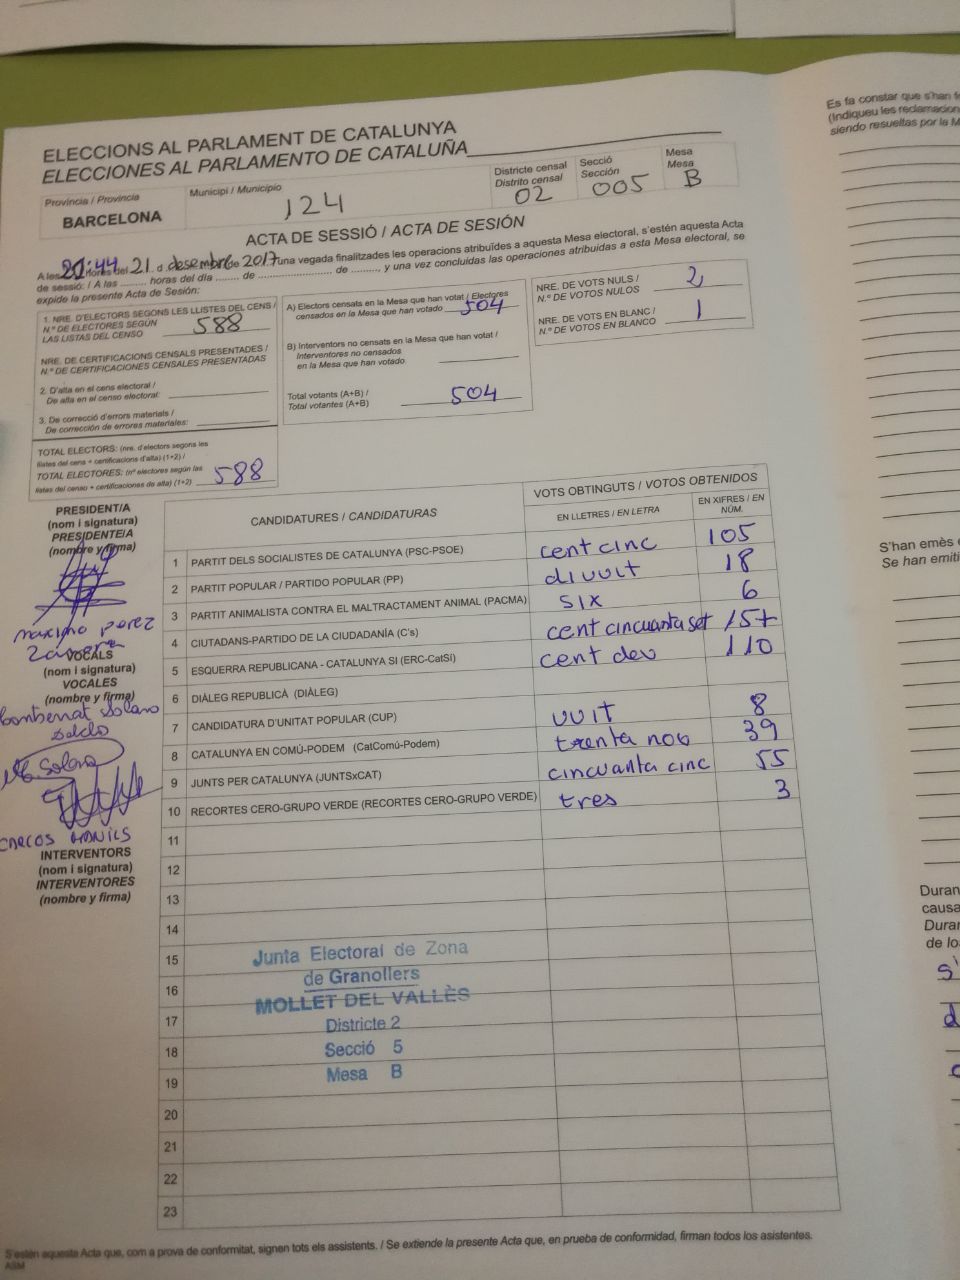 ELECCIONS AL PARLAMENT DE CATALUNYA
ELECCIONES AL PARLAMENTO DE CATALUÑA
Província / Provincia
BARCELONA
Municipi / Municipio
124
Districte censal
Distrito censal
02
Secció
Sección
005
Mesa
Mesa
B
ACTA DE SESSIÓ / ACTA DE SESIÓN
A les 20:44 hores del 21 d desembre de 2017 una vegada finalitzades les operacions atribuïdes a aquesta Mesa electoral, s'estén aquesta Acta
de sessió: / A las ........ horas del día ........ de ........................ de ........, y una vez concluidas las operaciones atribuidas a esta Mesa electoral, se
expide la presente Acta de Sesión:
1. NRE. D'ELECTORS SEGONS LES LLISTES DEL CENS /
N.º DE ELECTORES SEGÚN
LAS LISTAS DEL CENSO 588
NRE. DE CERTIFICACIONS CENSALS PRESENTADES /
N.º DE CERTIFICACIONES CENSALES PRESENTADAS
2. D'alta en el cens electoral /
De alta en el censo electoral:
3. De correcció d'errors materials /
De corrección de errores materiales:
TOTAL ELECTORS: (nre. d'electors segons les
llistes del cens + certificacions d'alta) (1+2) /
TOTAL ELECTORES: (nº electores según las
listas del censo + certificaciones de alta) (1+2) 588
A) Electors censats en la Mesa que han votat / Electores
censados en la Mesa que han votado 504
B) Interventors no censats en la Mesa que han votat /
Interventores no censados
en la Mesa que han votado
Total votants (A+B) /
Total votantes (A+B) 504
NRE. DE VOTS NULS /
N.º DE VOTOS NULOS 2
NRE. DE VOTS EN BLANC /
N.º DE VOTOS EN BLANCO 1
PRESIDENT/A
(nom i signatura)
PRESIDENTE/A
(nombre y firma)
maximo perez
VOCALS
(nom i signatura)
VOCALES
(nombre y firma)
Solano
INTERVENTORS
(nom i signatura)
INTERVENTORES
(nombre y firma)
CANDIDATURES / CANDIDATURAS
VOTS OBTINGUTS / VOTOS OBTENIDOS
EN LLETRES / EN LETRA
EN XIFRES / EN NÚM.
1 PARTIT DELS SOCIALISTES DE CATALUNYA (PSC-PSOE) cent cinc 105
2 PARTIT POPULAR / PARTIDO POPULAR (PP) divuit 18
3 PARTIT ANIMALISTA CONTRA EL MALTRACTAMENT ANIMAL (PACMA) six 6
4 CIUTADANS-PARTIDO DE LA CIUDADANÍA (C's) cent cincuanta set 157
5 ESQUERRA REPUBLICANA - CATALUNYA SÍ (ERC-CatSí) cent deu 110
6 DIÀLEG REPUBLICÀ (DIÀLEG)
7 CANDIDATURA D'UNITAT POPULAR (CUP) vuit 8
8 CATALUNYA EN COMÚ-PODEM (CatComú-Podem) trenta nou 39
9 JUNTS PER CATALUNYA (JUNTSxCAT) cincuanta cinc 55
10 RECORTES CERO-GRUPO VERDE (RECORTES CERO-GRUPO VERDE) tres 3
11
12
13
14
15
16
17
18
19
20
21
22
23
Junta Electoral de Zona
de Granollers
MOLLET DEL VALLÈS
Districte 2
Secció 5
Mesa B
S'estén aquesta Acta que, com a prova de conformitat, signen tots els assistents. / Se extiende la presente Acta que, en prueba de conformidad, firman todos los asistentes.
Es fa constar que s'han
(Indiqueu les
siendo resueltas por la
S'han emès
Se han
Duran
causa
Duran
de lo